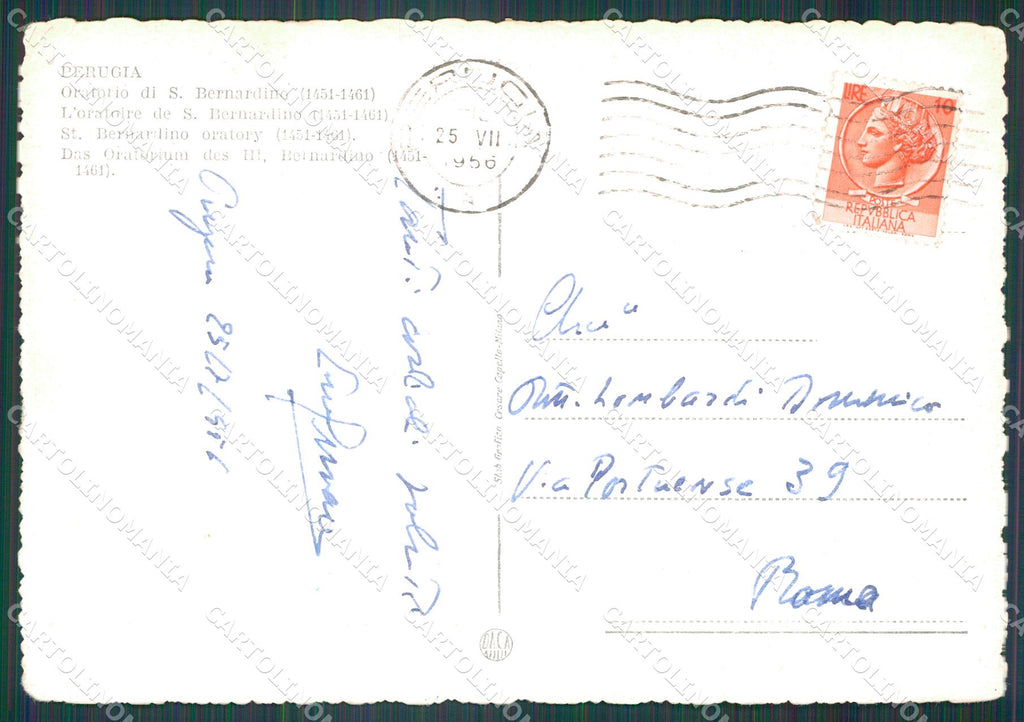 PERUGIA
Oratorio di S. Bernardino (1451-1461)
L'oratoire de S. Bernardino (1451-1461)
St. Bernardino oratory (1451-1461).
Das Oratorium des Hl, Bernardino (1451-
1461).
25 VII
1956
LIRE 10
POSTE
REPVBBLICA
ITALIANA
Tanti cordiali saluti
25/7/1956
Stab. Grafico Cesare Capello-Milano
Dott. Lombardi Domenico
Via Portuense 39
Roma
DACA
CARTOLINOMANIA